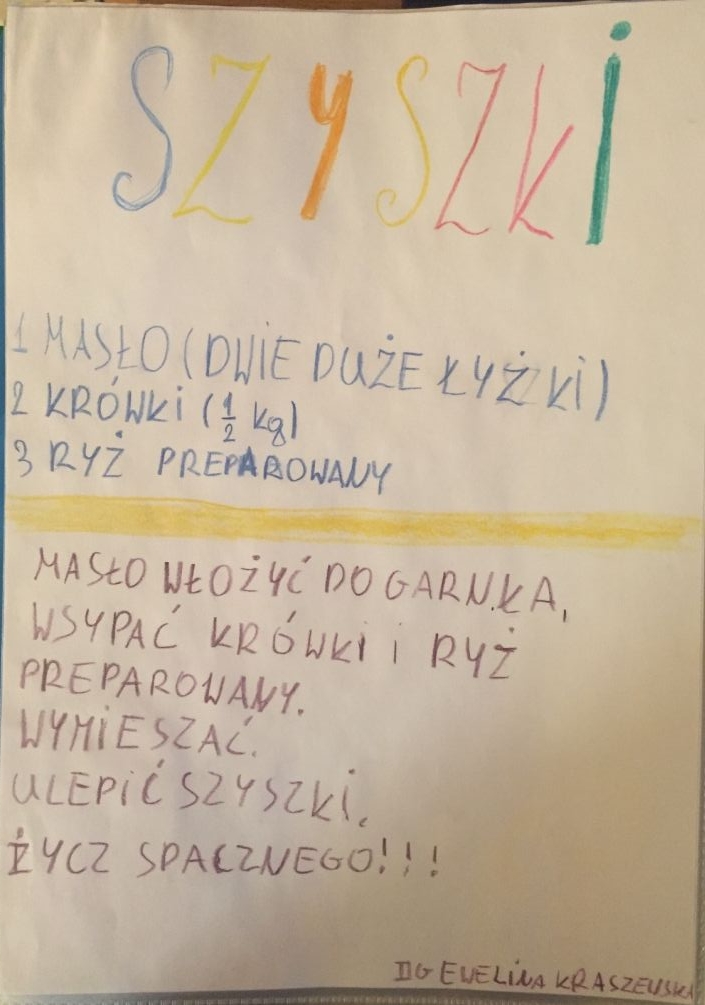 SZYSZKI
1 MASŁO (DWIE DUŻE ŁYŻKI)
2 KRÓWKI (1/2 kg)
3 RYŻ PREPAROWANY
MASŁO WŁOŻYĆ DO GARNKA,
WSYPAĆ KRÓWKI I RYŻ
PREPAROWANY.
WYMIESZAĆ.
ULEPIĆ SZYSZKI.
ŻYCZ SPACZNEGO!!!
IIG EWELINA KRASZEWSKA